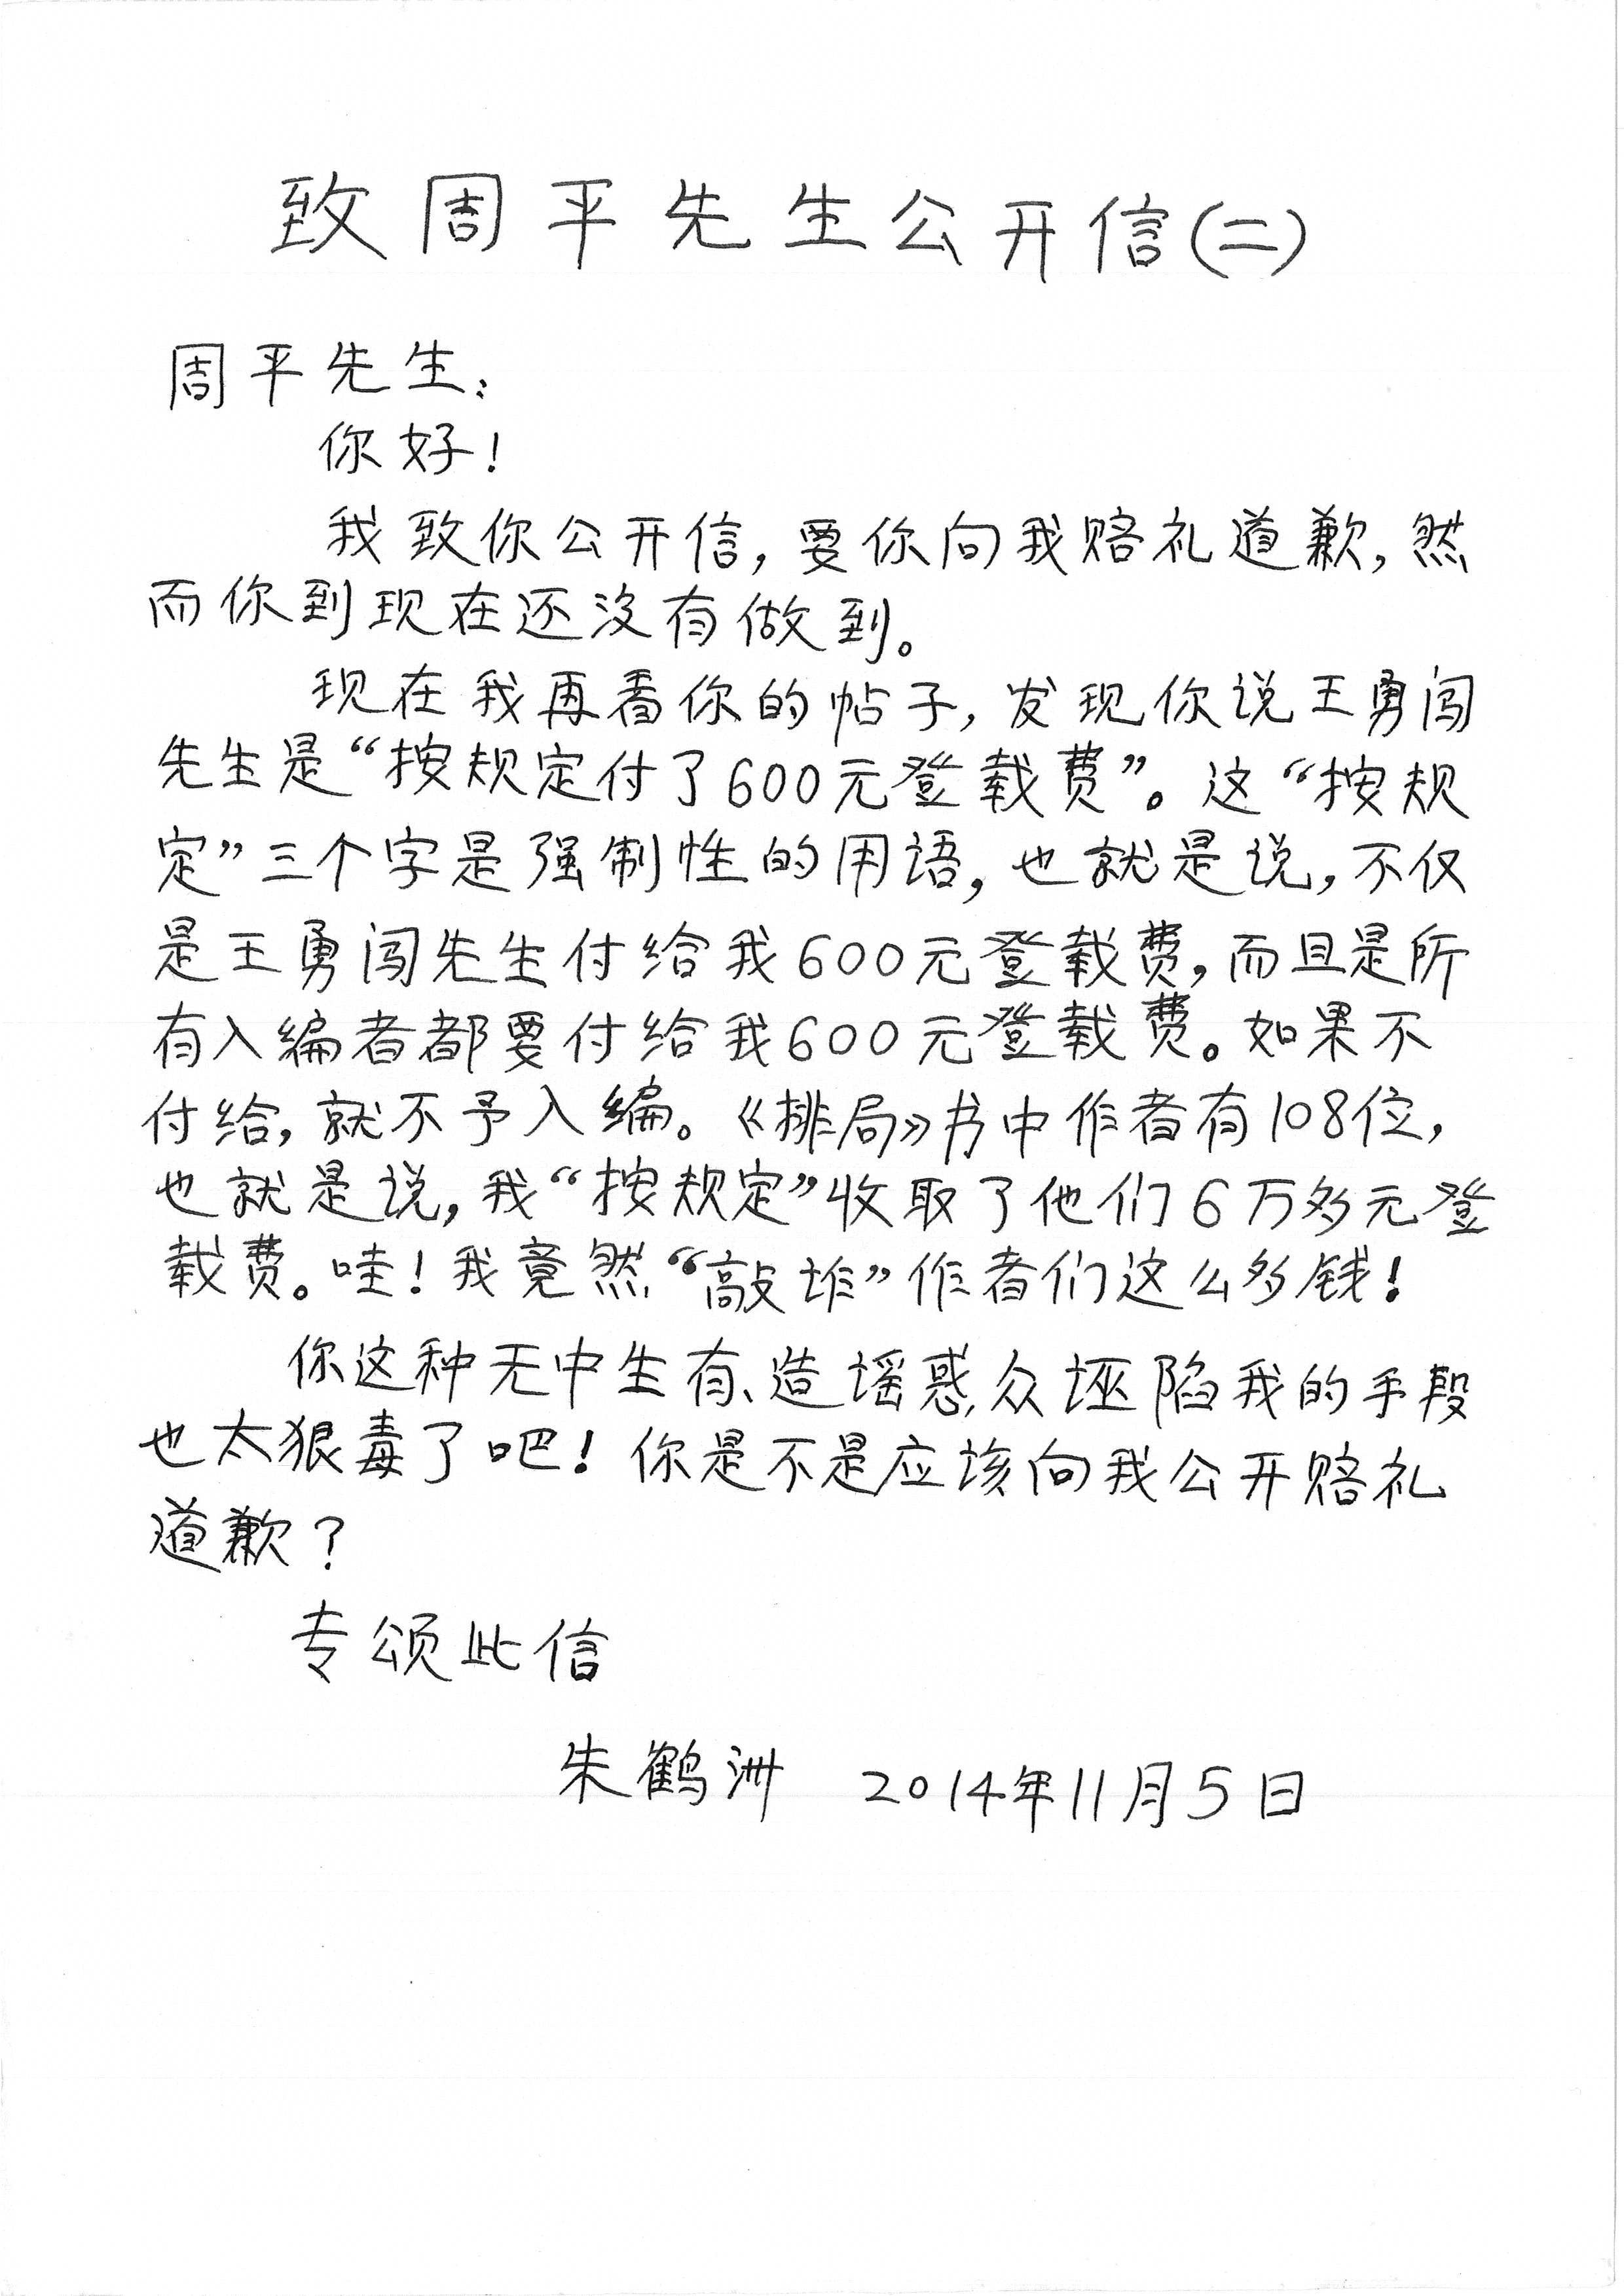 致周平先生公开信(二)
周平先生：
你好！
我致你公开信，要你向我赔礼道歉，然
而你到现在还没有做到。
现在我再看你的帖子，发现你说王勇闯
先生是“按规定付了600元登载费”。这“按规
定”三个字是强制性的用语，也就是说，不仅
是王勇闯先生付给我600元登载费，而且是所
有入编者都要付给我600元登载费。如果不
付给，就不予入编。《排局》书中作者有108位，
也就是说，我“按规定”收取了他们6万多元登
载费。哇！我竟然“敲诈”作者们这么多钱！
你这种无中生有、造谣惑众诬陷我的手段
也太狠毒了吧！你是不是应该向我公开赔礼
道歉？
专颂此信
朱鹤洲 2014年11月5日